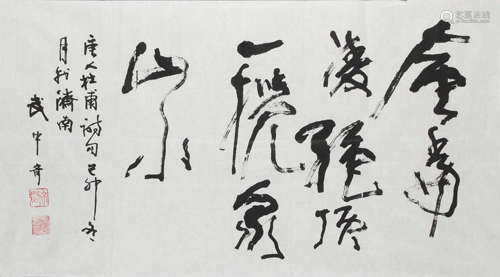 會當
凌絕頂
一覽眾
山小
唐人杜甫詩句己卯冬
月於濟南
武中奇